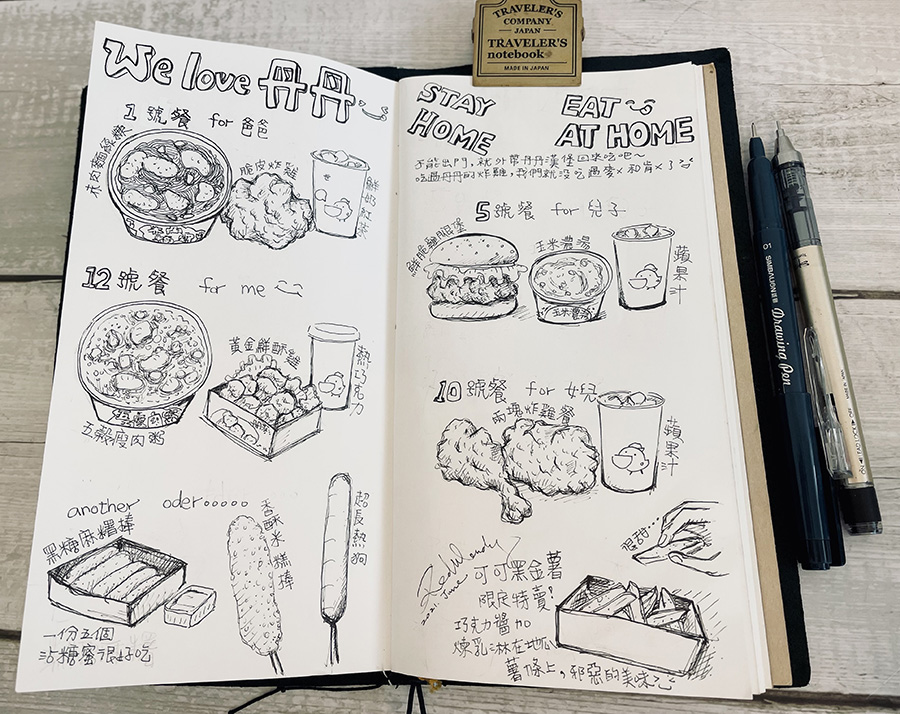 TRAVELER'S
COMPANY
JAPAN
TRAVELER'S
notebook
MADE IN JAPAN
We love 丹丹
1號餐 for 爸爸
脆皮炸雞
鮮奶紅茶
12號餐 for me
黃金鮮酥雞
熱巧克力
五穀瘦肉粥
五穀瘦肉粥
another oder.....
黑糖麻糬棒
香酥米糕棒
超長熱狗
一份五個
沾糖蜜很好吃
STAY
HOME
EAT
AT HOME
不能出門，就外帶丹丹漢堡回來吃吧~
吃過丹丹的炸雞，我們就沒吃過麥X和肯X了
5號餐 for 兒子
鮮脆雞腿堡
玉米濃湯
玉米濃湯
蘋果汁
10號餐 for 女兒
兩塊炸雞餐
蘋果汁
2021. June
可可黑金薯
限定特賣!
巧克力醬加
煉乳淋在地瓜
薯條上，邪惡的美味
01 SIMBALION Drawing Pen